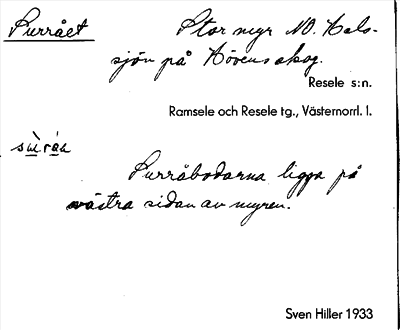 Surrået
Stor myr NO. Hals-
sjön på Hövens skog.
Resele s:n.
Ramsele och Resele tg., Västernorrl. l.
Surråbodarna ligga på
västra sidan av myren.
Sven Hiller 1933